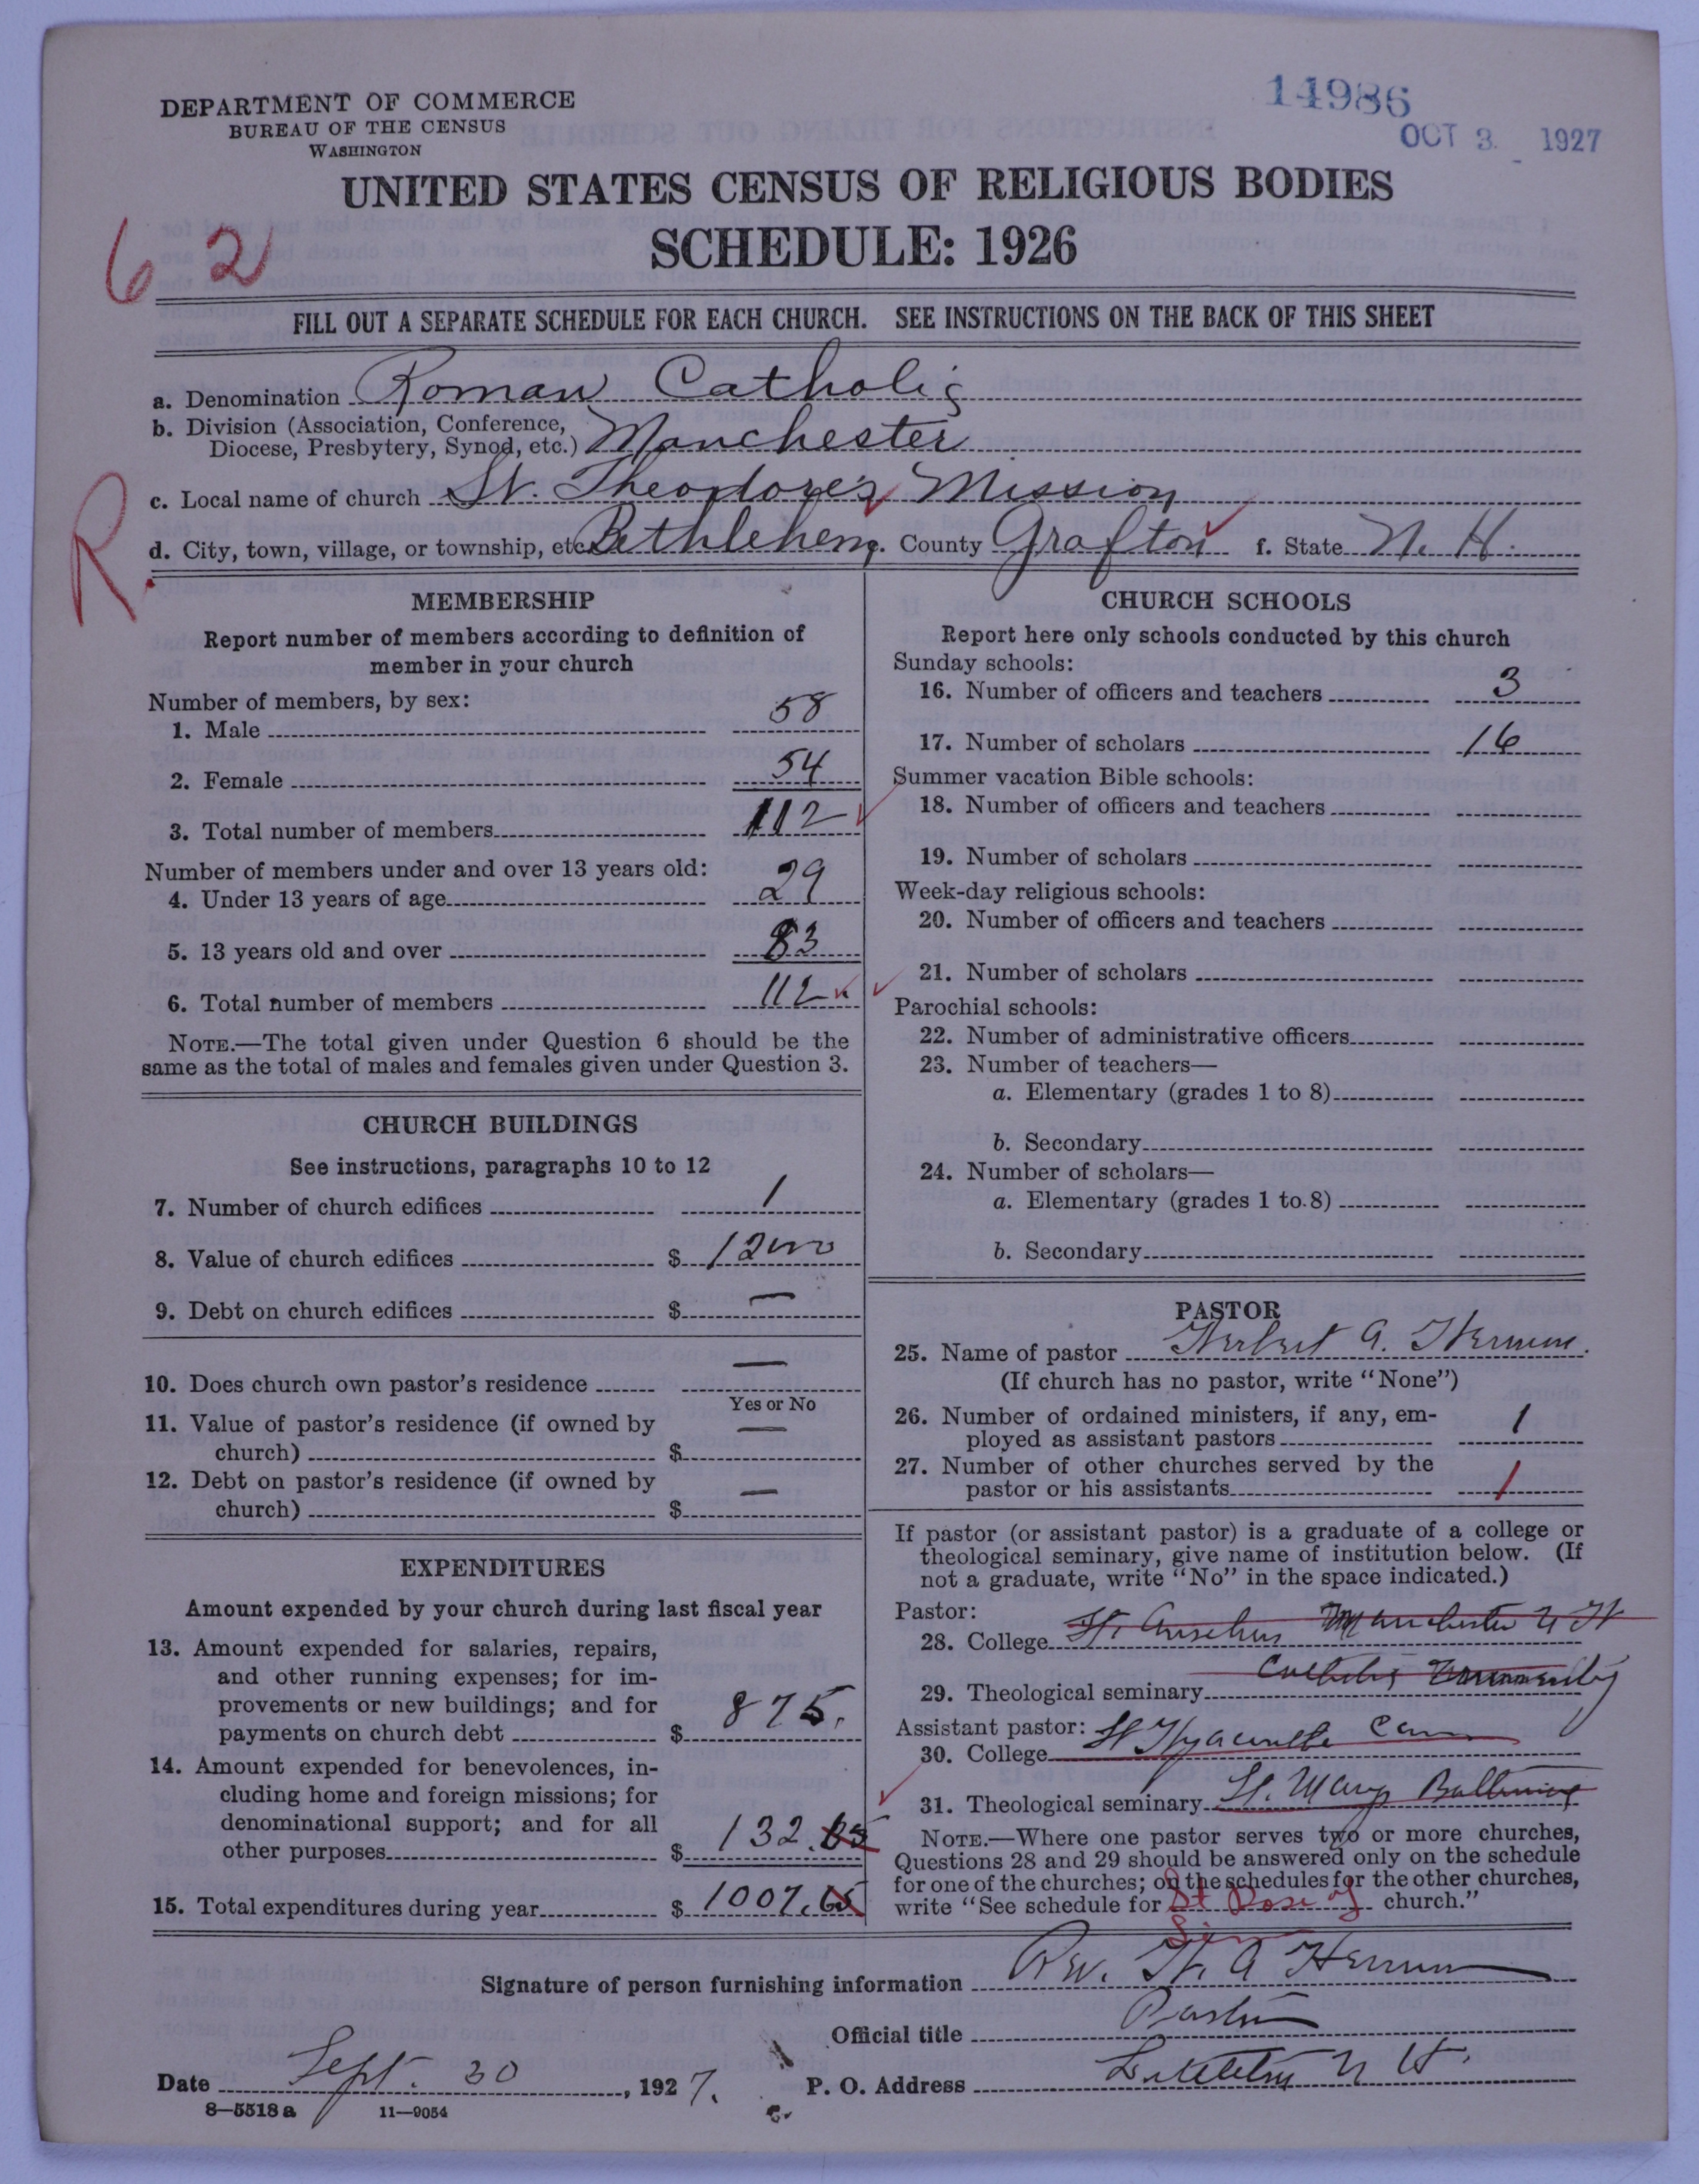 14986
OCT 3 1927
DEPARTMENT OF COMMERCE
BUREAU OF THE CENSUS
WASHINGTON
UNITED STATES CENSUS OF RELIGIOUS BODIES
SCHEDULE: 1926
6 2
FILL OUT A SEPARATE SCHEDULE FOR EACH CHURCH. SEE INSTRUCTIONS ON THE BACK OF THIS SHEET
a. Denomination Roman Catholic
b. Division (Association, Conference,
Diocese, Presbytery, Synod, etc.) Manchester
c. Local name of church St. Theodore's Mission
R.
d. City, town, village, or township, etc. Bethlehem e. County Grafton f. State N. H.
MEMBERSHIP
Report number of members according to definition of
member in your church
Number of members, by sex:
1. Male 58
2. Female 54
3. Total number of members 112
Number of members under and over 13 years old:
4. Under 13 years of age 29
5. 13 years old and over 83
6. Total number of members 112
NOTE.—The total given under Question 6 should be the
same as the total of males and females given under Question 3.
CHURCH BUILDINGS
See instructions, paragraphs 10 to 12
7. Number of church edifices 1
8. Value of church edifices $ 12000
9. Debt on church edifices $ —
10. Does church own pastor's residence —
Yes or No
11. Value of pastor's residence (if owned by
church) $ —
12. Debt on pastor's residence (if owned by
church) $ —
EXPENDITURES
Amount expended by your church during last fiscal year
13. Amount expended for salaries, repairs,
and other running expenses; for im-
provements or new buildings; and for
payments on church debt $ 875.
14. Amount expended for benevolences, in-
cluding home and foreign missions; for
denominational support; and for all
other purposes $ 132.65
15. Total expenditures during year $ 1007.65
CHURCH SCHOOLS
Report here only schools conducted by this church
Sunday schools:
16. Number of officers and teachers 3
17. Number of scholars 16
Summer vacation Bible schools:
18. Number of officers and teachers
19. Number of scholars
Week-day religious schools:
20. Number of officers and teachers
21. Number of scholars
Parochial schools:
22. Number of administrative officers
23. Number of teachers—
a. Elementary (grades 1 to 8)
b. Secondary
24. Number of scholars—
a. Elementary (grades 1 to 8)
b. Secondary
PASTOR
25. Name of pastor Herbert A. Hennon
(If church has no pastor, write "None")
26. Number of ordained ministers, if any, em-
ployed as assistant pastors 1
27. Number of other churches served by the
pastor or his assistants 1
If pastor (or assistant pastor) is a graduate of a college or
theological seminary, give name of institution below. (If
not a graduate, write "No" in the space indicated.)
Pastor:
28. College St. Anselms Manchester N H
29. Theological seminary Catholic University
Assistant pastor:
30. College St Hyacinthe Can
31. Theological seminary St. Marys Baltimore
NOTE.—Where one pastor serves two or more churches,
Questions 28 and 29 should be answered only on the schedule
for one of the churches; on the schedules for the other churches,
write "See schedule for St Rose of Lima church."
Signature of person furnishing information Rev. H. A Hennon
Official title Pastor
Date Sept. 30, 1927. P. O. Address Littleton N H.
8—5518 a 11—9054